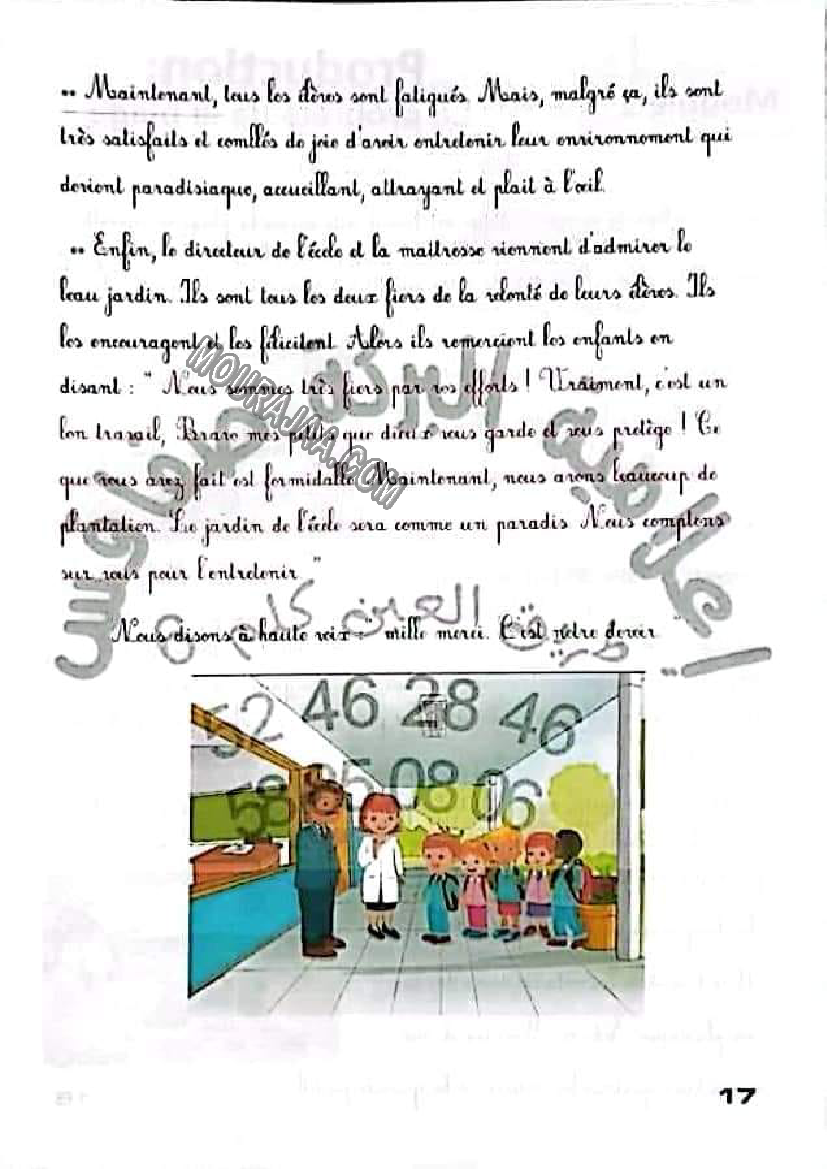 •• Maintenant, tous les élèves sont fatigués. Mais, malgré ça, ils sont
très satisfaits et comblés de joie d'avoir entretenir leur environnement qui
devient paradisiaque, accueillant, attrayant et plait à l'œil.
•• Enfin, le directeur de l'école et la maitresse viennent d'admirer le
beau jardin. Ils sont tous les deux fiers de la volonté de leurs élèves. Ils
les encouragent et les félicitent. Alors ils remercient les enfants en
disant : " Nous sommes très fiers par vos efforts ! Vraiment, c'est un
bon travail, Bravo mes petits que dieu vous garde et vous protège ! Ce
que vous avez fait est formidable. Maintenant, nous avons beaucoup de
plantation. Le jardin de l'école sera comme un paradis. Nous comptons
sur vous pour l'entretenir. "
Nous disons à haute voix : " mille merci. C'est notre devoir. "
MOURAJAA.COM
اعلامية البركة صفاقس
طريق العين كلم 8
52 46 28 46
58 05 08 06
17